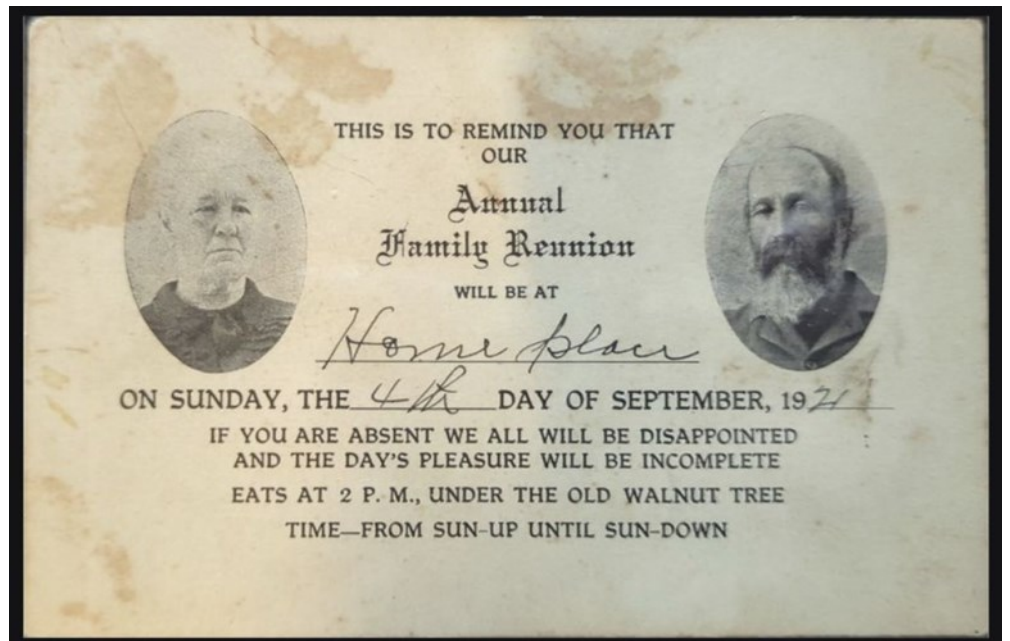 THIS IS TO REMIND YOU THAT
OUR
Annual
Family Reunion
WILL BE AT
Home place
ON SUNDAY, THE 4th DAY OF SEPTEMBER, 1921
IF YOU ARE ABSENT WE ALL WILL BE DISAPPOINTED
AND THE DAY'S PLEASURE WILL BE INCOMPLETE
EATS AT 2 P. M., UNDER THE OLD WALNUT TREE
TIME—FROM SUN-UP UNTIL SUN-DOWN